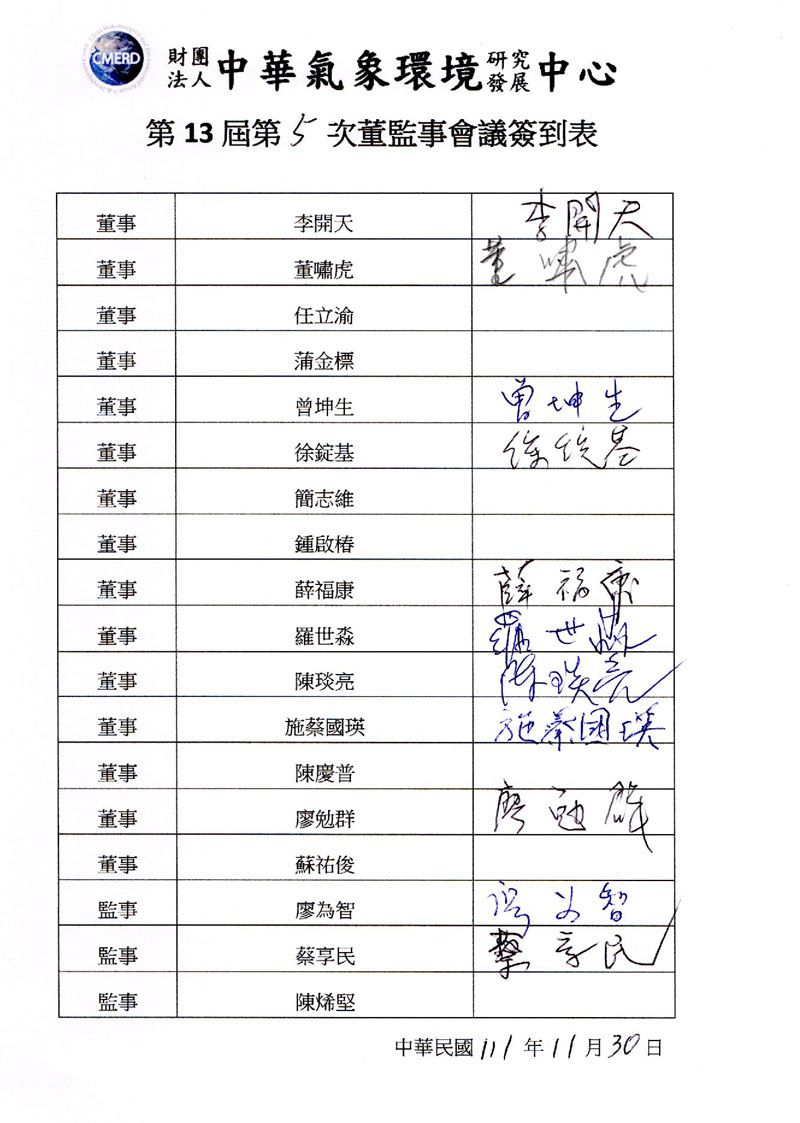 CMERD
財團法人中華氣象環境研究發展中心
第13屆第5次董監事會議簽到表
董事 李開天 李開天
董事 董嘯虎 董嘯虎
董事 任立渝
董事 蒲金標
董事 曾坤生 曾坤生
董事 徐錠基 徐錠基
董事 簡志維
董事 鍾啟椿
董事 薛福康 薛福康
董事 羅世淼 羅世淼
董事 陳琰亮 陳琰亮
董事 施蔡國瑛 施蔡國瑛
董事 陳慶普
董事 廖勉群 廖勉群
董事 蘇祐俊
監事 廖為智 為智
監事 蔡享民 蔡享民
監事 陳烯堅
中華民國111年11月30日